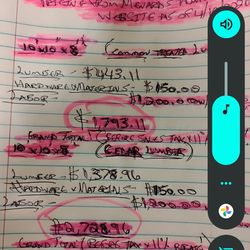 WEBSITE AS OF
10'x10'x8' (COMMON TREATED
LUMBER - $443.11
HARDWARE & MATERIALS - $150.00
LABOR - $1,200.00
$1,793.11
GRAND TOTAL (BEFORE SALES TAX
10x10x8 CEDAR LUMBER
LUMBER - $1,378.96
HARDWARE & MATERIALS - $150.00
LABOR - $1200.00
$2,728.96
GRAND TOTAL (BEFORE SALES TAX